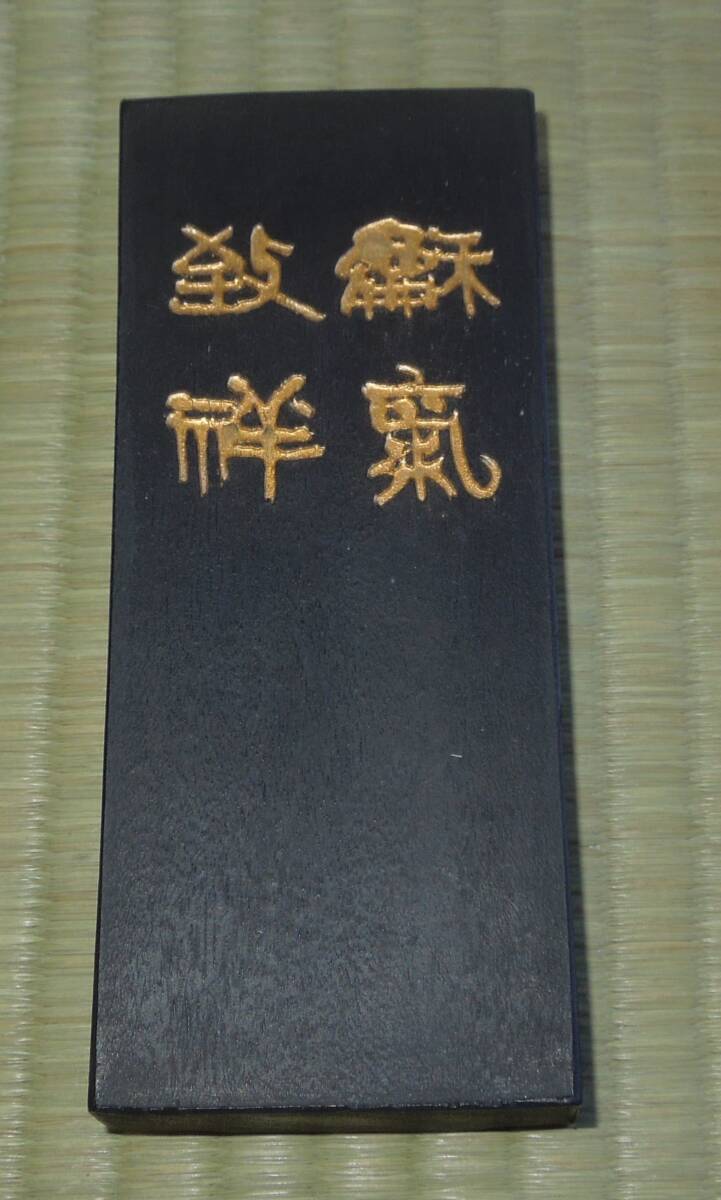 龢氣
致祥